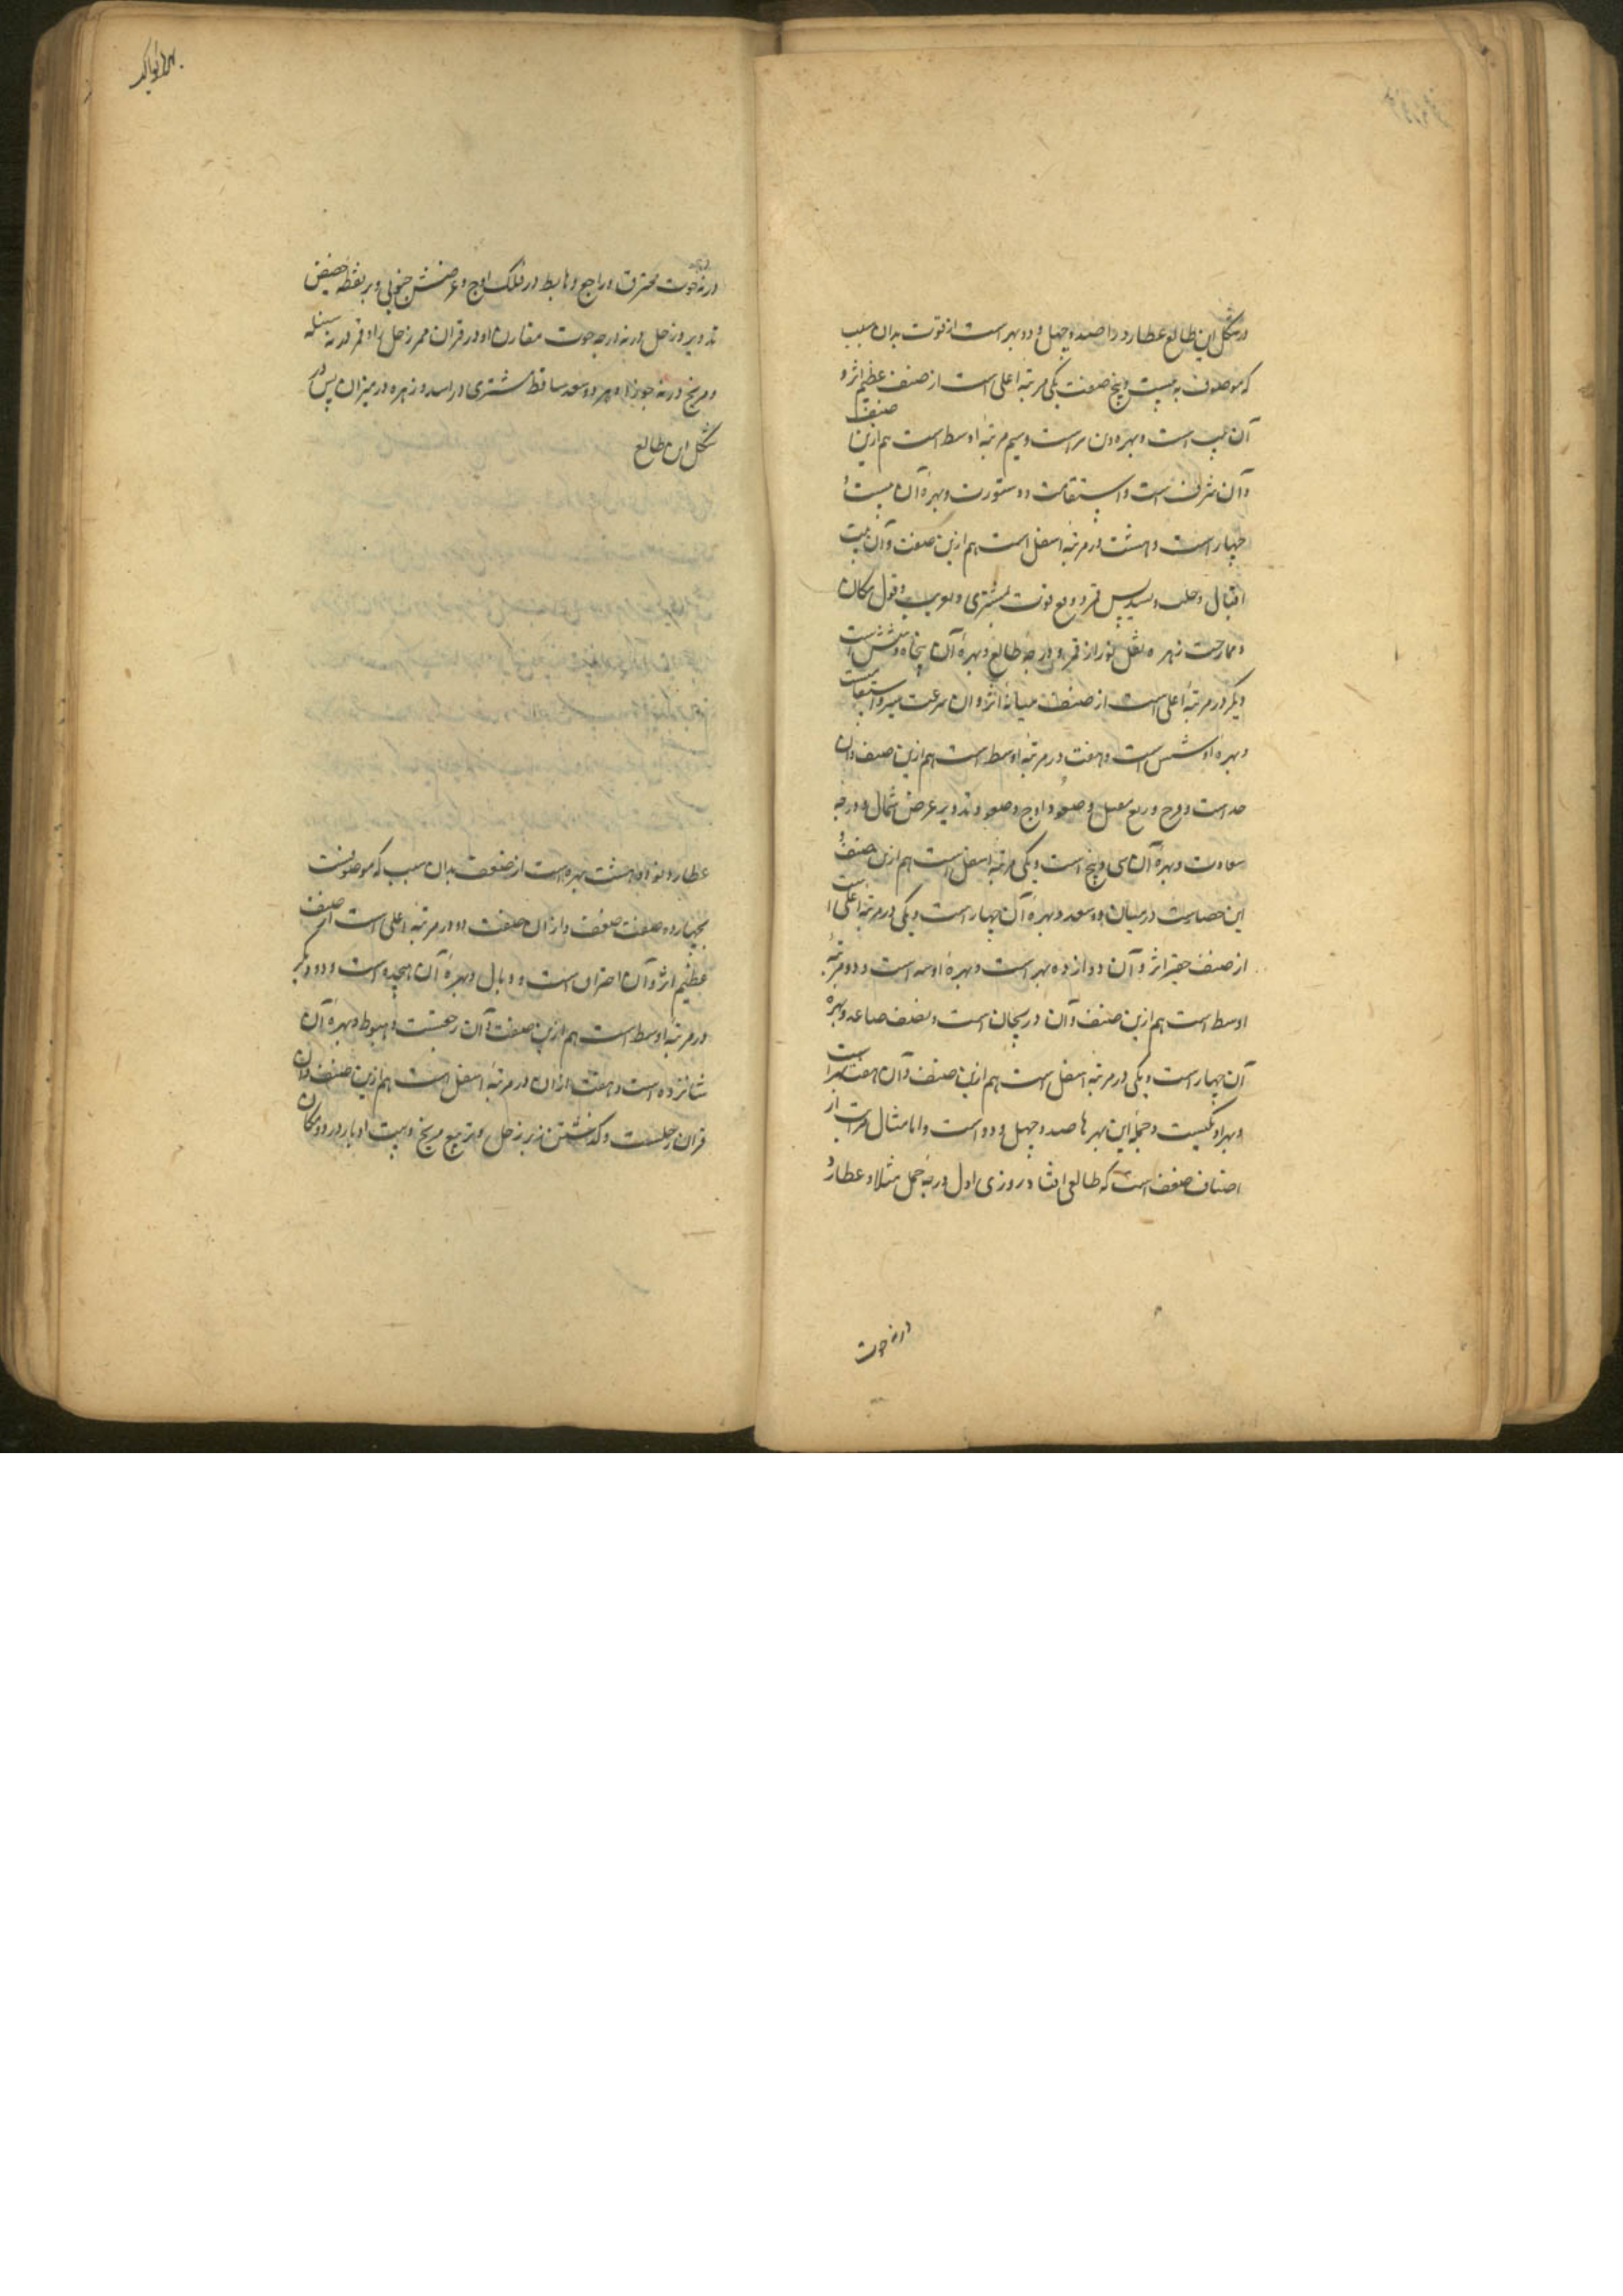 در شکل این طالع عطارد را صد و چهل و دو بهر است از قوت بدان سبب
که موصوف به بیست و پنج صفت یکی مرتبه اعلی است از صنف عظیم اثر و
آن است و بهره است و سیم مرتبه اوسط است هم ازین صنف
و آن شرف است و استقامت و بهره آن بیست و
چهار است و هشت در مرتبه اسفل است هم ازین صنف و آن بیت
اقبال و قمر و قوت مشتری و قبول مکان
و ممازجت زهره و نقل نور از قمر و درجه طالع و بهره آن پنجاه و شش است
دیگر در مرتبه اعلی است از صنف میانه اثر و آن سرعت سیر و استقامت است
و بهره او شش است و هفت در مرتبه اوسط است هم ازین صنف و آن
حد است و وجه و ربع مقبل و صعود اوج و صعود تدویر عرض شمال و درجه
سعادت و بهره آن سی و پنج است و یکی مرتبه اسفل است هم ازین صنف و
این حصارست در میان دو سعد و بهره آن چهار است و یکی در مرتبه اعلی است
از صنف حقیر اثر و آن دوازده بهر است و بهره او سه است و دو مرتبه
اوسط است هم ازین صنف و آن دریجان است و نصف صاعد و بهره
آن چهار است و یکی در مرتبه اسفل است هم ازین صنف و آن هفت بهر است
و بهر او یکیست و جمله این بهرها صد و چهل و دو است و اما مثال مراتب از
اصناف ضعف است که طالعی افتاد روزی اول درجه حمل مثلا و عطارد
در نه حوت
در نه درجه حوت محترق و راجع و هابط در فلک اوج و عرضش جنوبی و بر نقطه حضیض
تدویر و زحل در نه درجه حوت مقارن او در قران ممر زحل را و قمر در نه سنبله
و مریخ در نه جوزا و هر دو سعد ساقط مشتری در اسد و زهره در میزان پس در
شکل این طالع
عطارد را نود و هشت بهره است از ضعف بدان سبب که موصوفست
بچهارده صفت ضعف و از آن صفت دو در مرتبه اعلی است از صنف
عظیم اثر و آن احتراق است و وبال و بهره آن هجده است و دو دیگر
در مرتبه اوسط است هم ازین صنف و آن رجعتست و هبوط و بهره آن
شانزده است و هفت از آن در مرتبه اسفل است هم ازین صنف و آن
قران زحلست و گذشتن زیر زحل و تربیع مریخ و بیت ادبار و رد و مکان